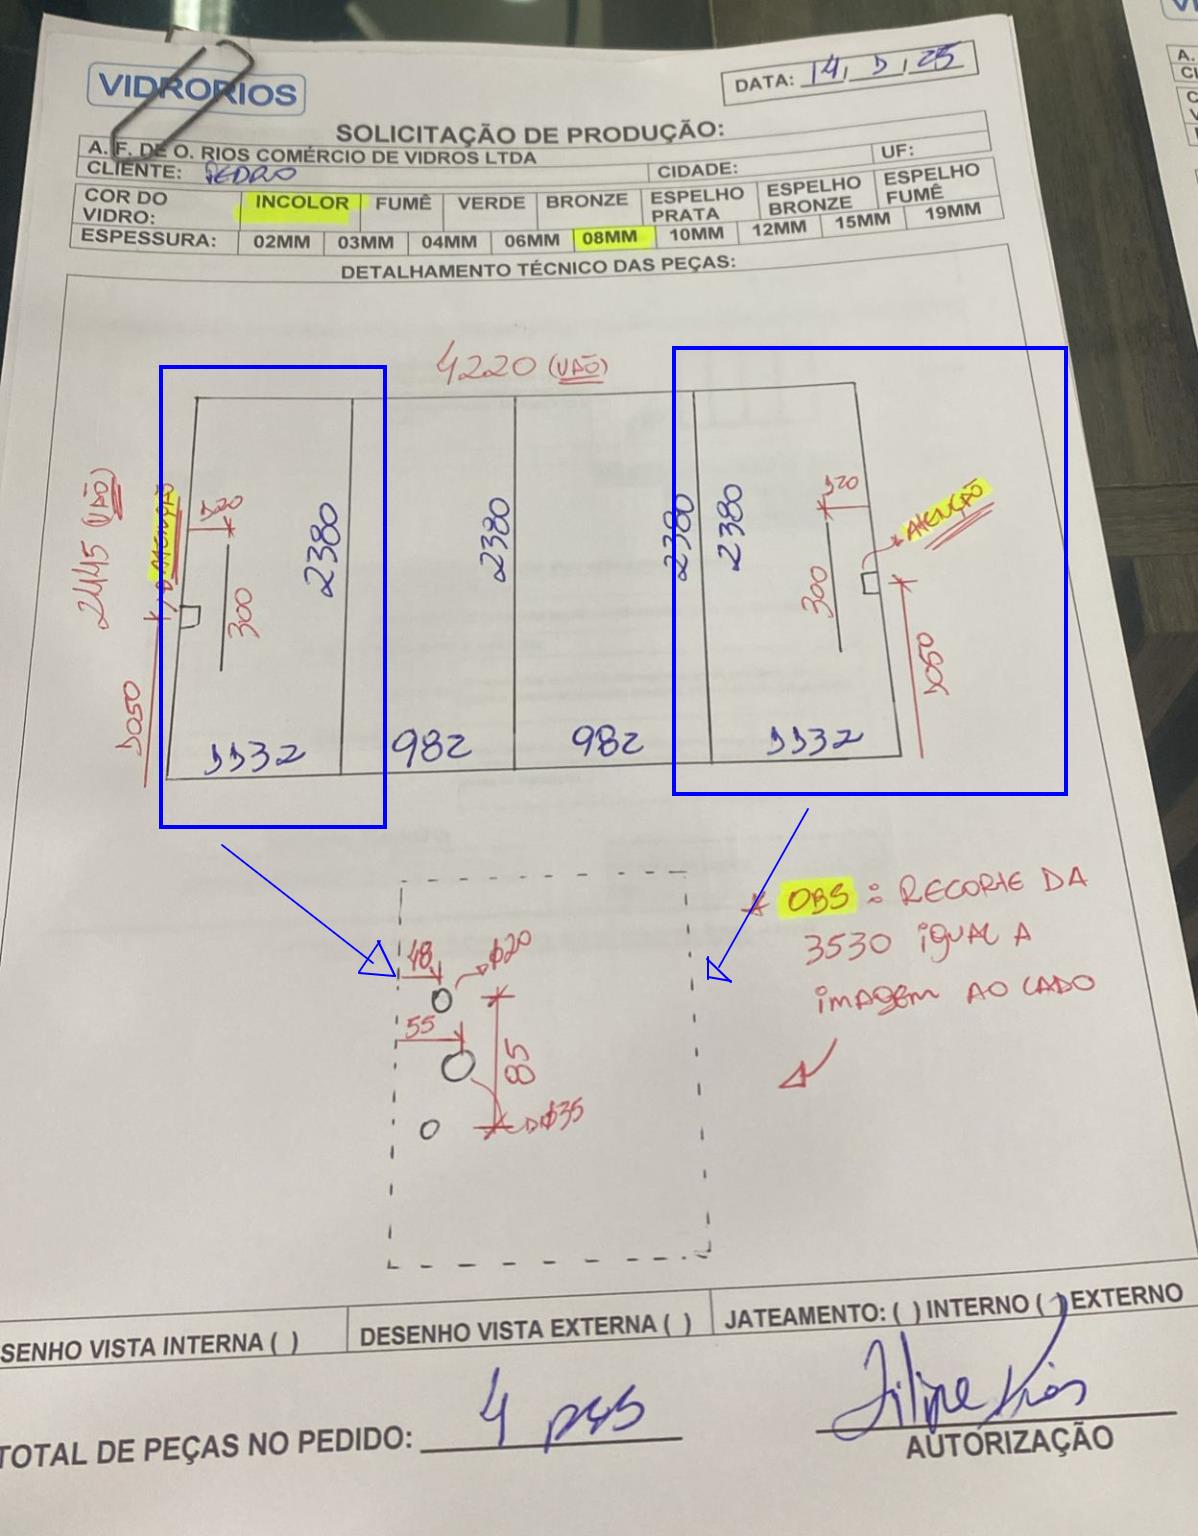 VIDRORIOS
DATA: 14, 1, 25
SOLICITAÇÃO DE PRODUÇÃO:
A. F. DE O. RIOS COMÉRCIO DE VIDROS LTDA
CLIENTE: PEDRO CIDADE: UF:
COR DO VIDRO: INCOLOR FUMÊ VERDE BRONZE ESPELHO PRATA ESPELHO BRONZE ESPELHO FUMÊ
ESPESSURA: 02MM 03MM 04MM 06MM 08MM 10MM 12MM 15MM 19MM
DETALHAMENTO TÉCNICO DAS PEÇAS:
4220 (VÃO)
2445 (VÃO)
ATENÇÃO
120
300
2380
2380
2380
2380
120
300
ATENÇÃO
1050
1050
1132 982 982 1132
* OBS: RECORTE DA
3530 IGUAL A
IMAGEM AO LADO
48
ϕ20
55
85
ϕ35
SENHO VISTA INTERNA ( ) DESENHO VISTA EXTERNA ( ) JATEAMENTO: ( ) INTERNO ( ) EXTERNO
TOTAL DE PEÇAS NO PEDIDO: 4 pçs
Filipe Rios
AUTORIZAÇÃO